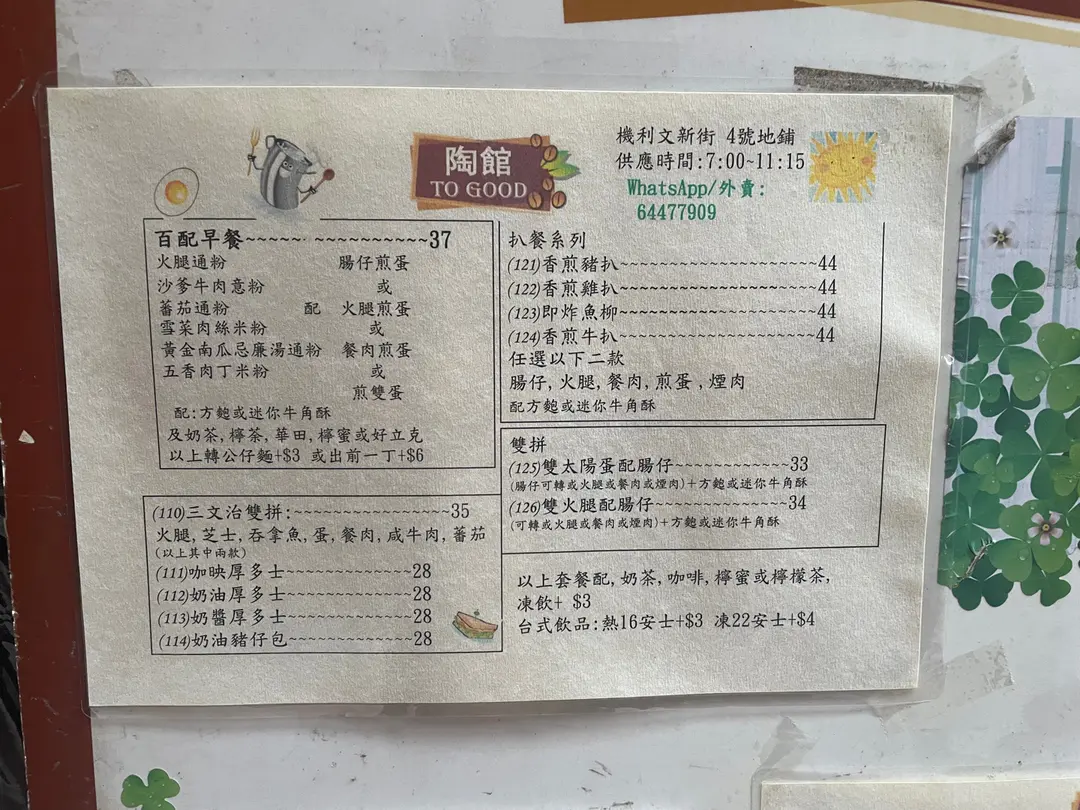 陶館
TO GOOD
機利文新街 4號地鋪
供應時間:7:00~11:15
WhatsApp/外賣:
64477909
百配早餐~~~~~~ ~~~~~~~~~~~37
火腿通粉 腸仔煎蛋
沙爹牛肉意粉 或
蕃茄通粉 配 火腿煎蛋
雪菜肉絲米粉 或
黃金南瓜忌廉湯通粉 餐肉煎蛋
五香肉丁米粉 或
煎雙蛋
配:方飽或迷你牛角酥
及奶茶,檸茶,華田,檸蜜或好立克
以上轉公仔麵+$3 或出前一丁+$6
(110)三文治雙拼:~~~~~~~~~~~~~~~~35
火腿,芝士,吞拿魚,蛋,餐肉,咸牛肉,蕃茄
(以上其中兩款)
(111)咖央厚多士~~~~~~~~~~~~~28
(112)奶油厚多士~~~~~~~~~~~~~28
(113)奶醬厚多士~~~~~~~~~~~~~28
(114)奶油豬仔包~~~~~~~~~~~~~28
扒餐系列
(121)香煎豬扒~~~~~~~~~~~~~~~~~~~~44
(122)香煎雞扒~~~~~~~~~~~~~~~~~~~~44
(123)即炸魚柳~~~~~~~~~~~~~~~~~~~~44
(124)香煎牛扒~~~~~~~~~~~~~~~~~~~~44
任選以下二款
腸仔,火腿,餐肉,煎蛋,煙肉
配方飽或迷你牛角酥
雙拼
(125)雙太陽蛋配腸仔~~~~~~~~~~~~33
(腸仔可轉或火腿或餐肉或煙肉)+方飽或迷你牛角酥
(126)雙火腿配腸仔~~~~~~~~~~~~~~34
(可轉或火腿或餐肉或煙肉)+方飽或迷你牛角酥
以上套餐配,奶茶,咖啡,檸蜜或檸檬茶,
凍飲+ $3
台式飲品:熱16安士+$3 凍22安士+$4